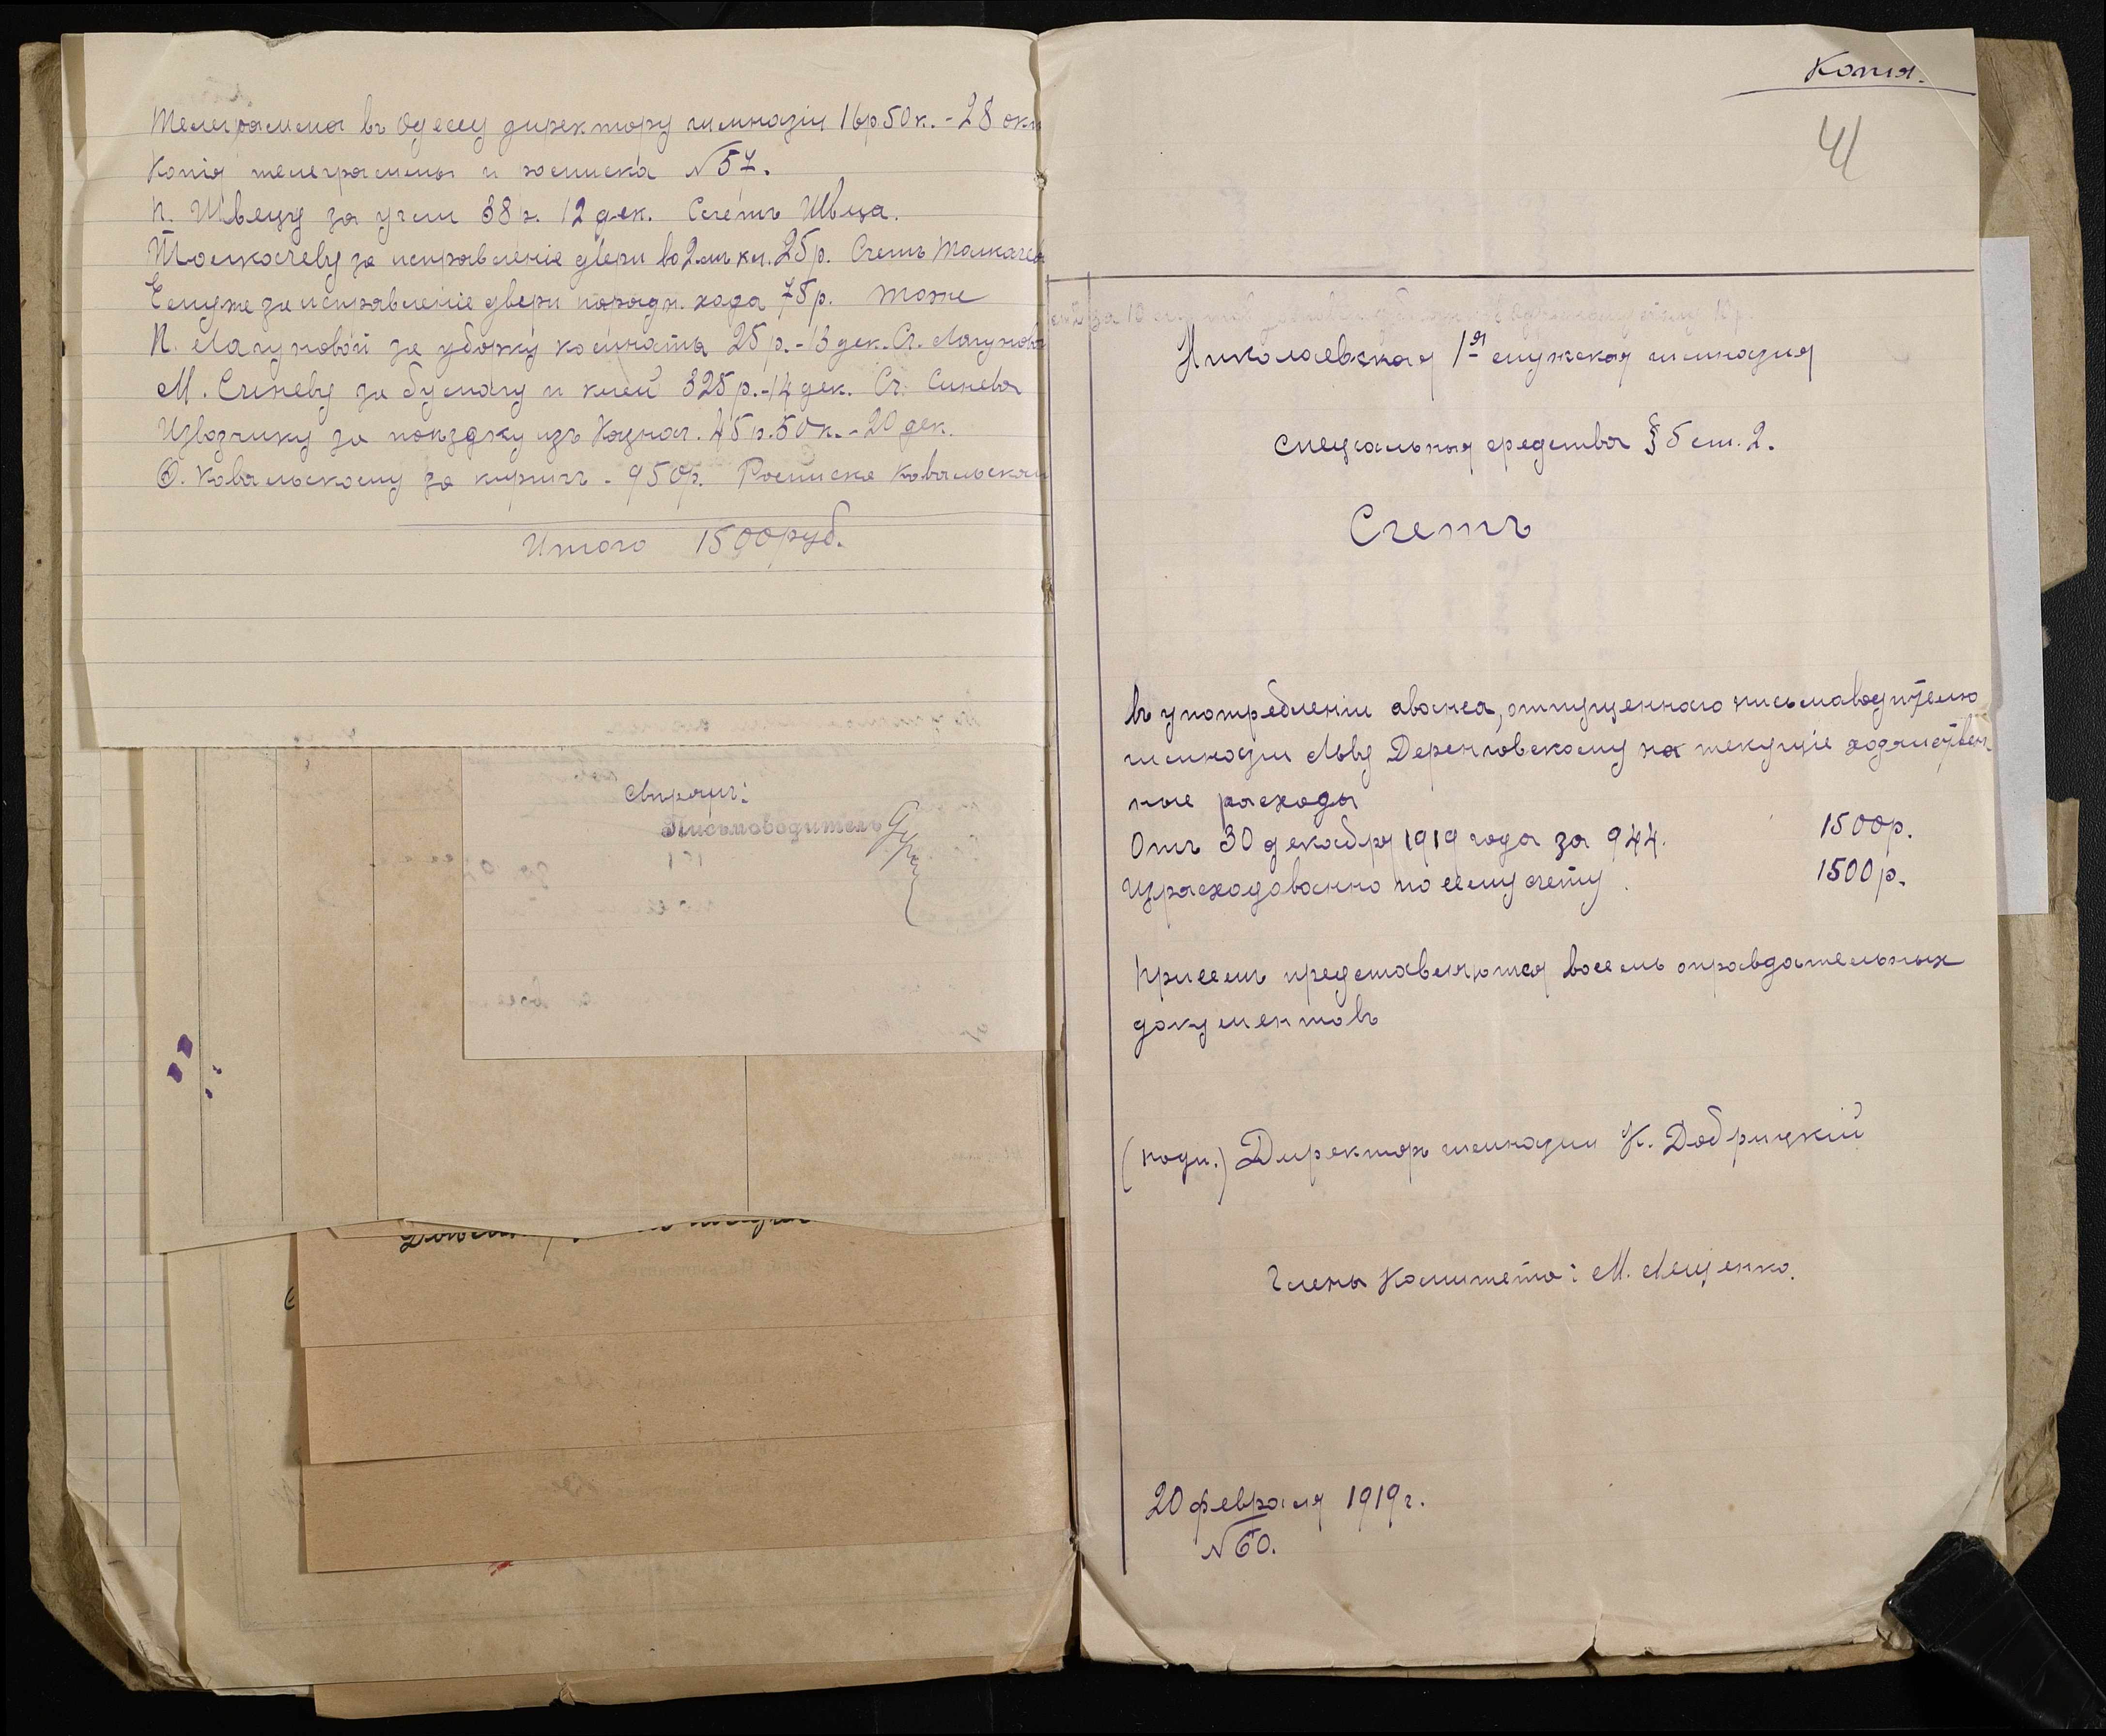 Телеграмма въ Одессу директору гимназіи 16р 50 к. - 28 окт
Копія телеграммы и росписка №57.
П. Швецу за угли 38 р. 12 дек. Счетъ Швеца.
Толкачеву за исправленіе двери во 2мъ кл. 25 р. Счетъ Толкачева
Ему же за исправленіе двери парадн. хода 75 р. тоже
П. Лагуновой за уборку комнаты 25 р. - 13 дек. Сч. Лагуновой
М. Синеву за бумагу и клей 325 р. - 14 дек. Сч. Синева
Извозчику за поѣздку изъ Казнач. 45 р. 50 к. - 20 дек.
Ф. Ковальскому за кирпич - 950р. Росписка Ковальскаго
Итого 1500 руб.
Свѣрялъ:
Письмоводитель
Копия.
41
Николаевская 1-я мужская гимназия
специальныя средства § 5 ст. 2.
Счетъ
въ употребленіи аванса, отпущеннаго письмаводителю
гимназии Льву Деренговскому на текущіе хозяйствен
ные расходы
Отъ 30 декабря 1919 года за 944. 1500р.
Израсходованно по сему счету. 1500 р.
При семъ представляются восемь оправдательных
документовъ
(подп.) Директоръ гимназии К. Добрицкій
Члены Комитета: М. Лещенко.
20 февраля 1919 г.
№ 60.